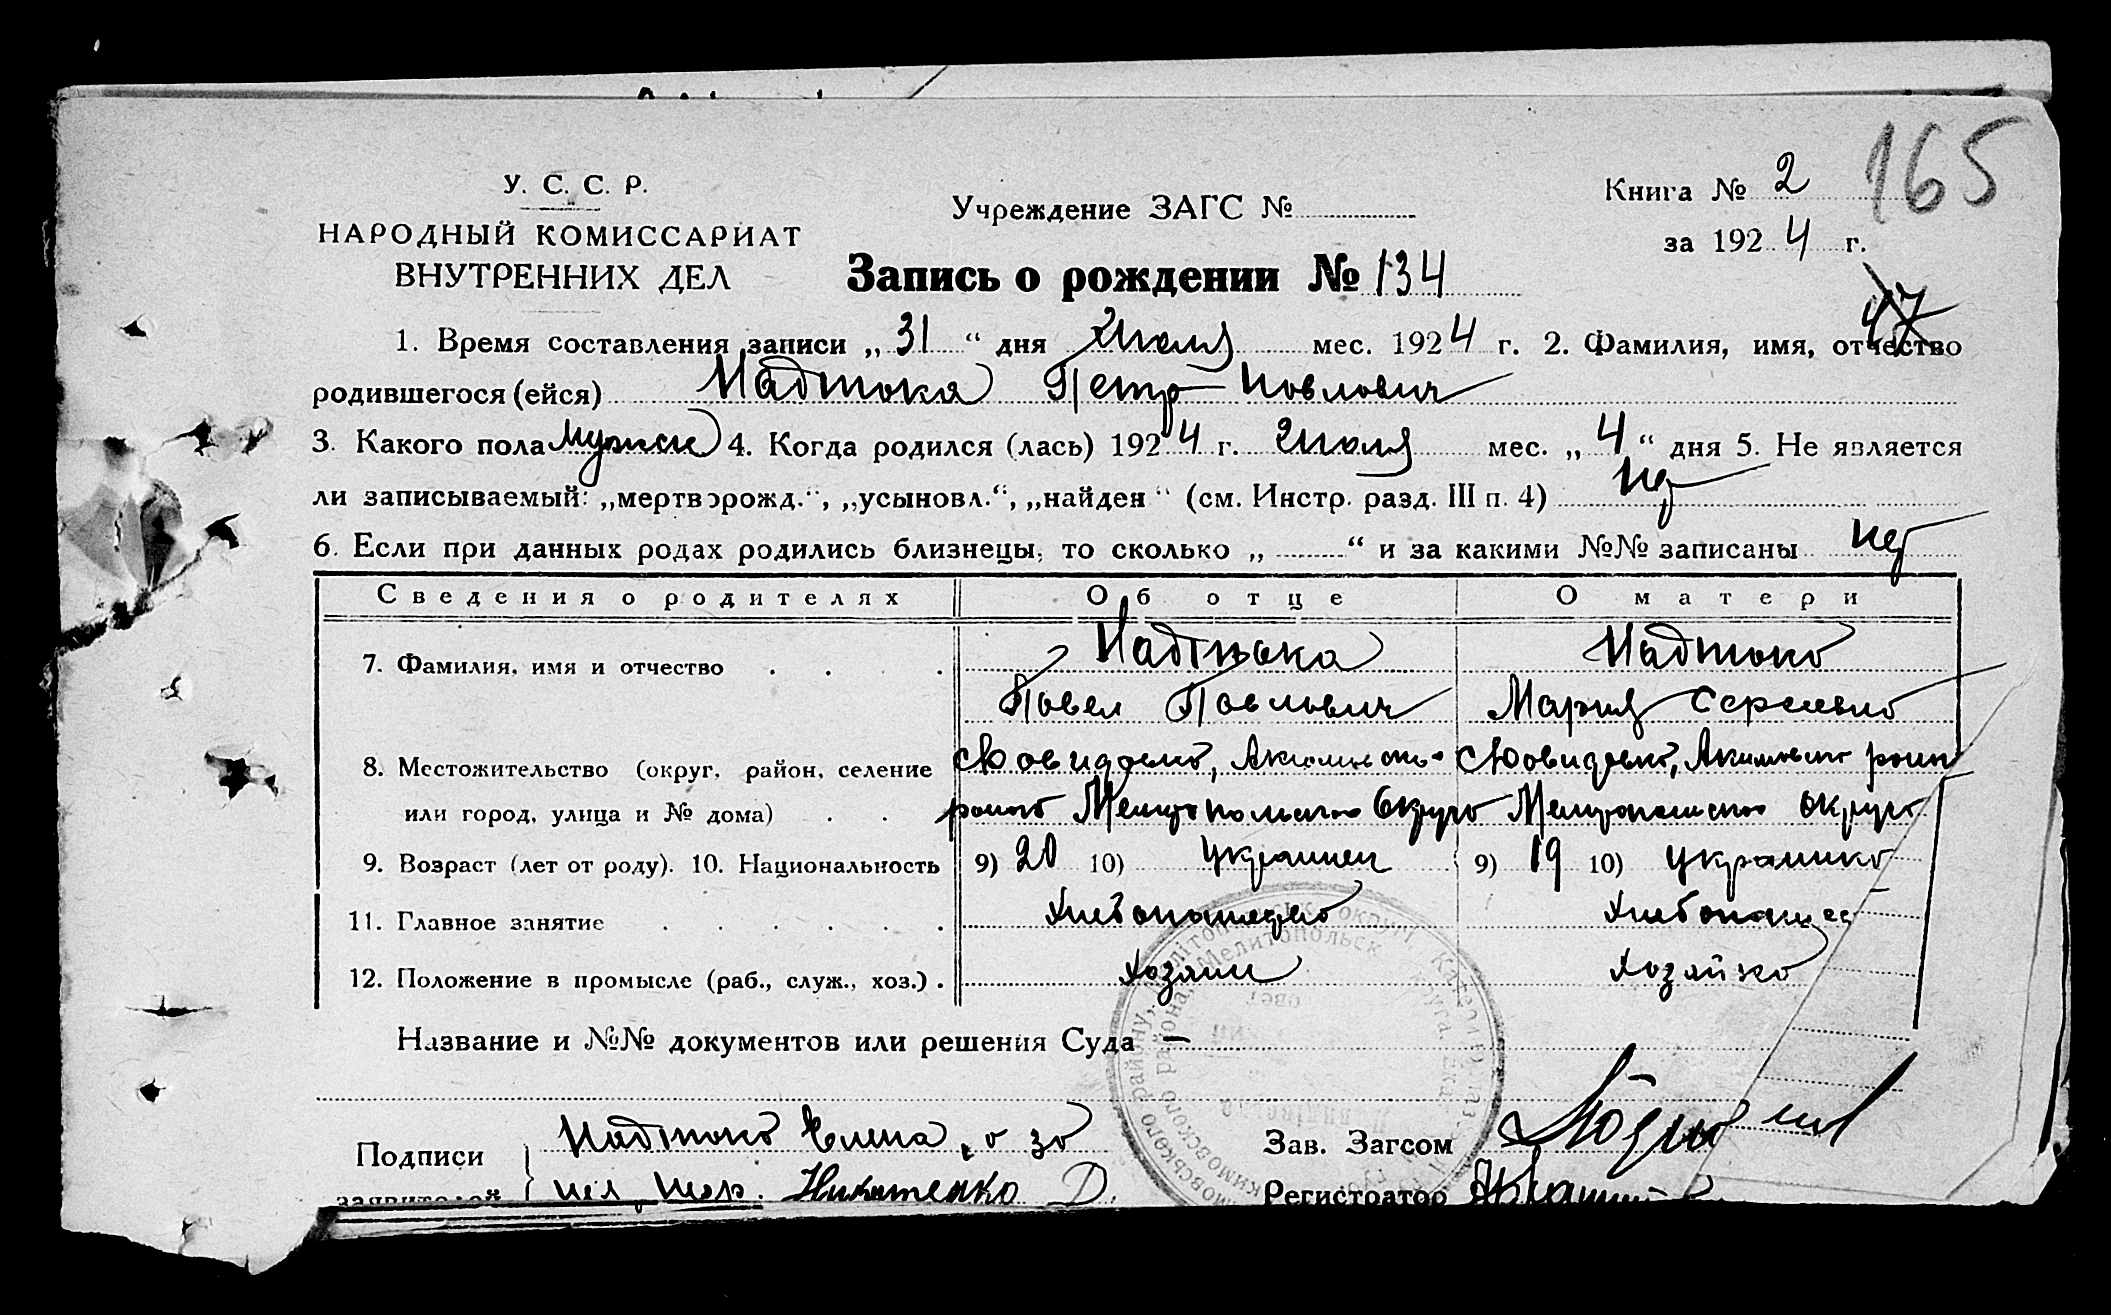 165
У. С. С. Р.
НАРОДНЫЙ КОМИССАРИАТ
ВНУТРЕННИХ ДЕЛ
Учреждение ЗАГС №
Книга № 2
за 1924 г.
Запись о рождении № 134
47
1. Время составления записи „31“ дня Июля мес. 1924 г. 2. Фамилия, имя, отчество
родившегося (ейся) Надтока Петр Повлович
3. Какого пола мужск 4. Когда родился (лась) 1924 г. Июля мес. „4“ дня 5. Не является
ли записываемый: „мертворожд.“, „усыновл.“, „найден“ (см. Инстр. разд. III п. 4) нет
6. Если при данных родах родились близнецы, то сколько „ “ и за какими №№ записаны нет
Сведения о родителях Об отце О матери
7. Фамилия, имя и отчество Надтока Надтока
Павел Павлович Мария
8. Местожительство (округ, район, селение
или город, улица и № дома) Мелитопольского Округа Мелитопольского округа
9. Возраст (лет от роду). 10. Национальность 9) 20 10) украинец 9) 19 10) украинка
11. Главное занятие
12. Положение в промысле (раб., служ., хоз.) хозяин хозяйка
Название и №№ документов или решения Суда —
Подписи Надтока Елена, а за
заявителей Никитенко Д.
Зав. Загсом
Регистратор